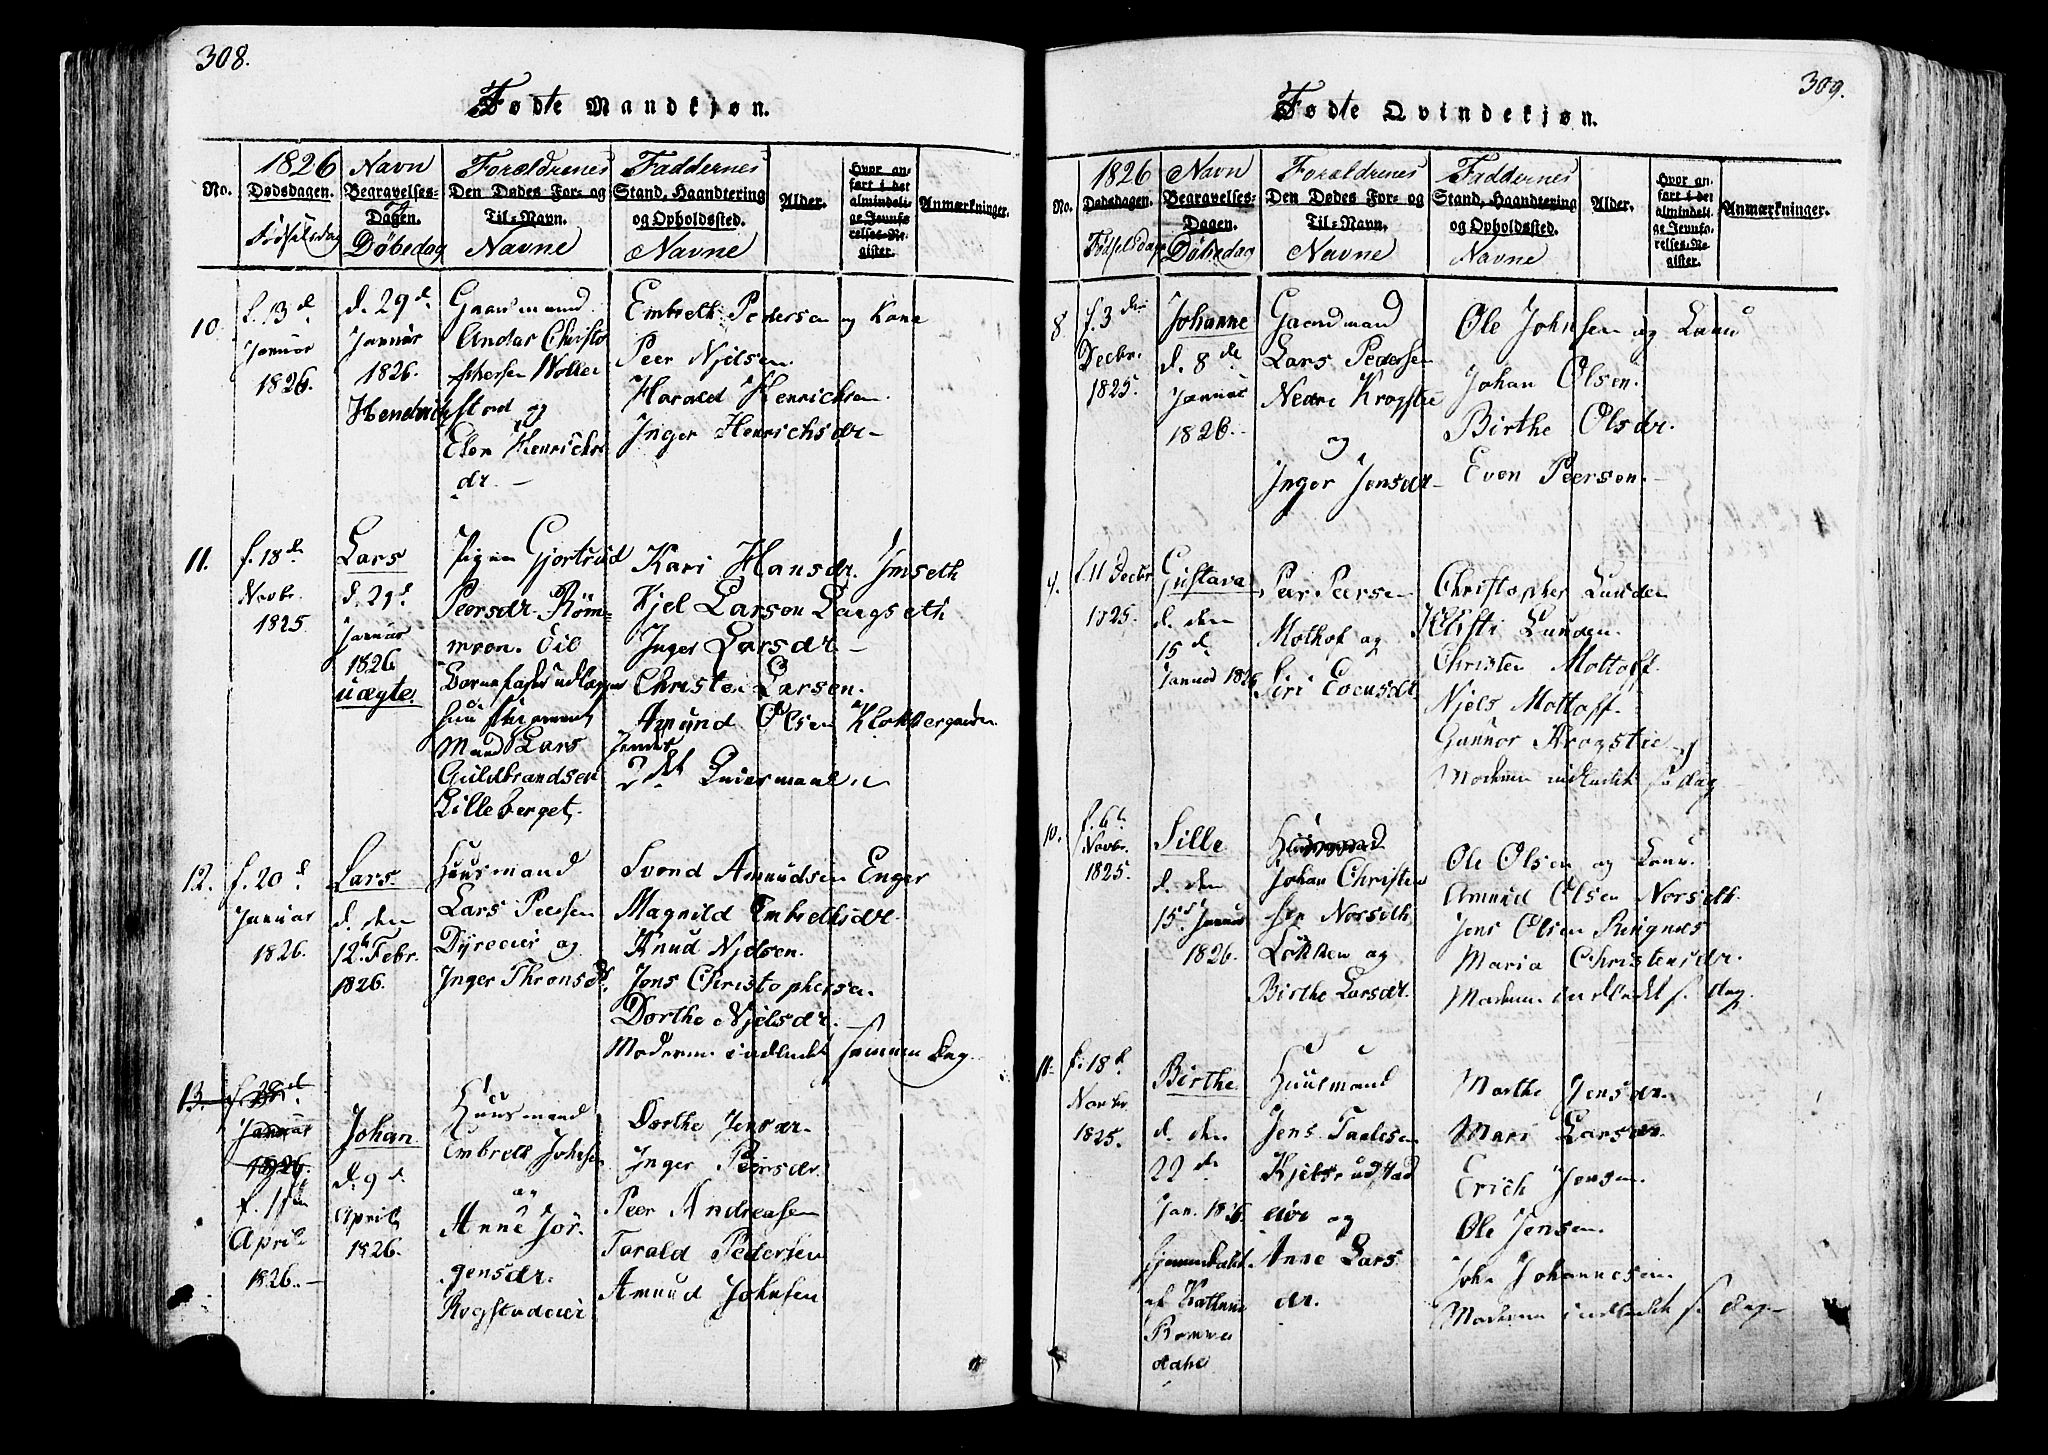 308.
Fødte Mandkjøn.
No.
1826
Dødsdagen.
Fødselsdag
Navn
Begravelses-
Dagen.
Døbedag
Forældrenes
Den Dødes For- og
Til-Navn.
Navne
Faddernes
Stand, Haandtering
og Opholdssted.
Navne
Alder.
Hvor an-
ført i det
almindeli-
ge Jevnfø-
relses-Re-
gister.
Anmærkninger.
10
f. 13 d
Januar
1826.
d. 29 d.
Januar
1826.
Hendrich
Gaardmand
Andas Christo
phersen Wolle
stad og
Elen Henrichs
dr. -
Embreth Pedersen og Kone
Peer Njelsen.
Harald Henrichsen.
Inger Henrichsdr -
11.
f. 18 d
Novbr.
1825
Lars
d. 29 d
Januar
1826
uægte.
Pigen Gjortrud
Peersdr. Röm-
Barnefader udlægges
Mand Lars
Guldbrandsen
Lilleberget.
Kari Hansdr. Imseth
Kjel Larsen Langseth
Inger Larsdr -
Christen Larsen.
Amund Olsen Klokkergaarden
2det Leiermaal
12.
f. 20 d.
Januar
1826.
Lars.
d. den
12te Febr.
1826.
Huusmand
Lars Peersen
Dyreeier og
Inger Thronsdr.
Svend Amundsen Enger
Magnild Embrethsdr.
Knud Njelsen.
Jens Christophersen.
Dorthe Njelsdr. -
Moderen indledt samme Dag.
13.
Januar
1826.
f. 1ste
April
1826. -
Johan
d. 9 d.
April
1826.
Huusmand
Embreth Johnsen
og
Anne Jör-
gensdr.
Rogstadeier
Dorthe Jensdr -
Inger Peersdr.
Peer Andreasen
Tarald Pedersen
Amund Johnsen
309.
Fødte Qvindekjøn.
No.
1826
Dødsdagen.
Fødselsdag
Navn
Begravelses-
Dagen.
Døbedag
Forældrenes
Den Dødes For- og
Til-Navn.
Navne
Faddernes
Stand, Haandtering
og Opholdssted.
Navne
Alder.
Hvor an-
ført i det
almindeli-
ge Jevnfø-
relses-Re-
gister.
Anmærkninger.
8
f. 3 den
Decbr.
1825.
Johanne
d. 8 de
Januar
1826. -
Gaardmand
Lars Pedersen
Nedre Krogstie
og
Inger Jensdr -
Ole Johnsen og Kone
Johan Olsen.
Birthe Olsdr.
Even Peersen. -
9.
f. 11 Decbr
1825.
Gustava
d. den
15 d
Januar 1826
Peer Peersen
Mothof og
Siri Evensdr
Christopher Lunden
Klisti Lunden.
Christen Mottoff.
Njels Mottoff.
Gunnor Krogstie
Moderen indledt s. dag
10.
f. 6te
Novbr.
1825.
Sille
d. den
15d Januar
1826.
Huusmand
Johan Christen
sen Norseth
Løkken og
Birthe Larsdr.
Ole Olsen og Kone.
Amund Olsen Norseth.
Jens Olsen Ringnæs
Maria Christensdr.
Moderen indledt s. dag.
11.
f. 18 d
Novbr
1825.
Birthe
d. den
22 de
Jan. 1826.
hjemmedøbt.
af
dahl
Huusmand
Jens Taalesen
Kjelsrudstad
eier og
Anne Lars
dr.
Marthe Jensdr.
Mari Larsdr.
Erich Jensen.
Ole Jensen.
John Johannesen
Moderen indledt s. dag -